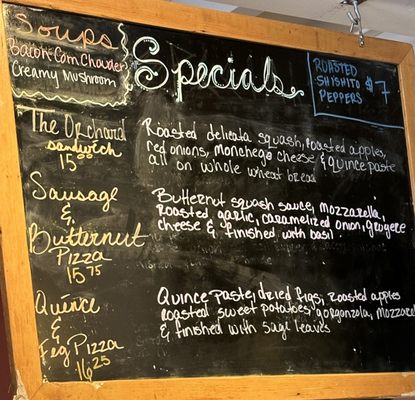 Soups
Bacon Corn Chowder
Creamy Mushroom
Specials
ROASTED
SHISHITO
PEPPERS
$7
The Orchard
sandwich
15.00
Roasted delicata squash, roasted apples,
red onions, monchego cheese & quince paste
all on whole wheat bread
Sausage
&
Butternut
Pizza
15 75
Butternut squash sauce, mozzarella,
Roasted garlic, caramelized onion, gruyere
cheese & finished with basil
Quince
&
Fig Pizza
16.25
Quince paste, dried figs, roasted apples
roasted sweet potatoes, gorgonzola, mozzare
& finished with sage leaves